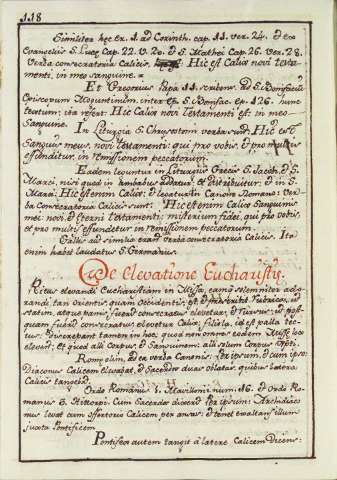 118
Similiter hęc ex 1. ad Corinth. cap. 11. ver. 24. & ex
Evangelijs S. Lucę Cap. 22. v. 20. & S. Mathei Cap. 26. ver. 28.
Verba consecratoria Calicis. Hic est Calix novi testa-
menti, in meo sanguine.
Et Gregorius Papa 11. scribens ad S. Bonifaciu
Episcopum Moguntinum, inter ep. S. Bonifac. ep. 126. hunc
textum; ita refert: Hic Calix novi Testamenti est: in meo
Sanguine.
In Liturgia S. Chrysostom verba sunt: Hic est
Sanguis meus, novi Testamenti: qui pro vobis, et pro multis
effunditur, in remissionem peccatorum.
Eadem leguntur in Liturgijs Grecis S. Jacobi, & S.
Marci, nisi quod in ambabus additur: et distribuitur: & in
Marci: Hic est enim Calix: & leguntur in Canone Romano: Ver-
ba Consecratoria Calicis sunt: Hic est enim Calix Sanguinis
mei: novi, & eterni testamenti: misterium fidei, qui pro vobis,
et pro multis effundetur in remissionem peccatorum.
Gallis au similia erant verba consecratoria Calicis. Ita
enim habet laudatus S. Germanus.
De Elevatione Eucharistię.
Ritus elevandi Eucharistiam in Missa, eamq solemniter ado-
randi, tan Orientis, quam Occidentis; est & prescribit Rubrica, ad
statim, atque panis, fuerit consecratus elevetur, & rursus; ut post-
quam fuerit consecratus elevetur Calix,
tur: discrepant tamen in hoc, quod non omnes eodem Missę loco
elevent, et quod alij Corpus, & Sanguinem: alij solum Corpus Xpti.
Romę olim, ad ea verba Canonis: Per ipsum, & cum ipso:
Diaconus Calicem elevabat, & Sacerdos duas oblatas, quibus latera
Calicis tangebat.
Ordo Romanus 1. Mavillonij num. 16. & Ordo Ro-
manus & Hittorpi. Cum Sacerdos dixerit Per ipsum: Archidiaco
nus levat cum offertorio Calicem per ansas, & tenet exaltans illum
juxta Pontificem
Pontifex autem tangit á latere Calicem dicens: